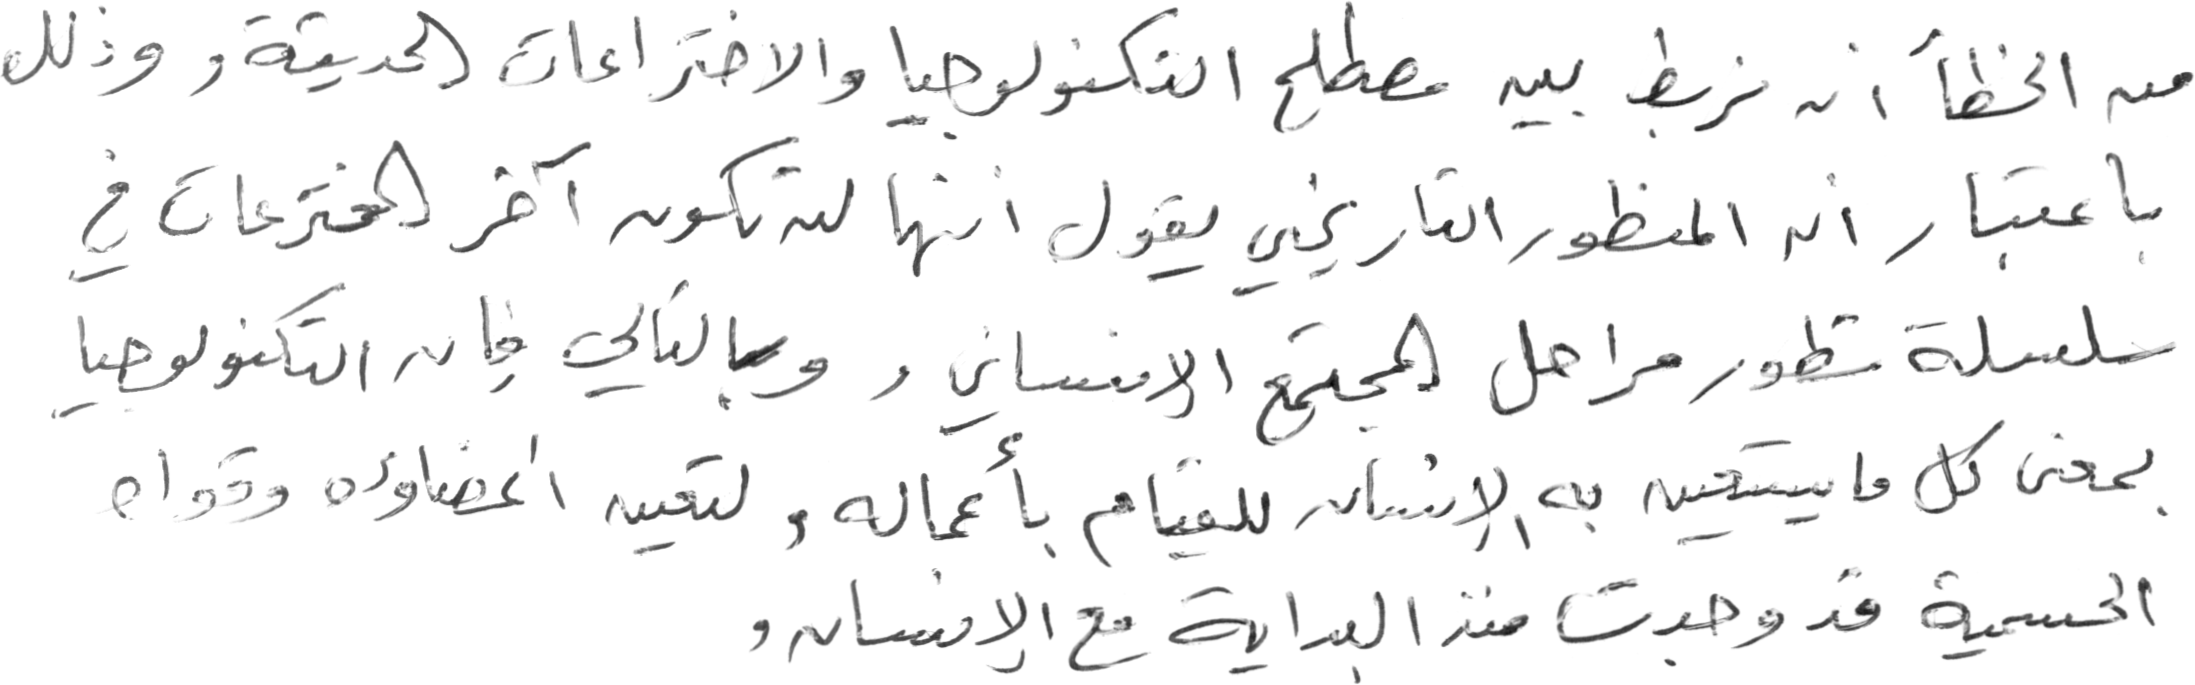 من الخطأ ان نربط بين مصطلح التكنولوجيا والاختراعات الحديثة، وذلك
باعتبار ان المنظور التاريخي يقول انها لن تكون آخر المخترعات في
سلسلة تطور مراحل المجتمع الإنساني، وبالتالي فإن التكنولوجيا
بمعنى كل ما يستعين به الإنسان للقيام بأعماله، لتعين اعضاؤه وقواه
الجسمية قد وجدت منذ البداية مع الإنسان،